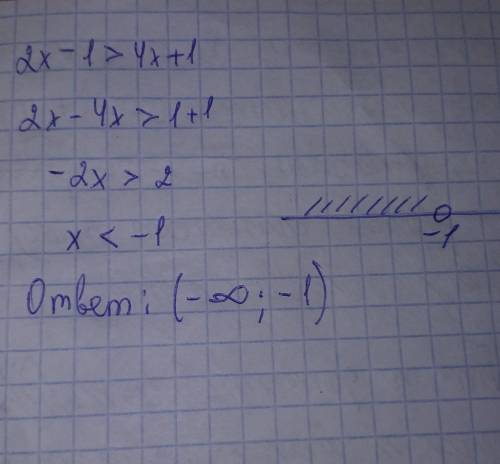 2x-1>4x+1
2x-4x>1+1
-2x>2
x<-1
-1
Ответ: (-∞;-1)